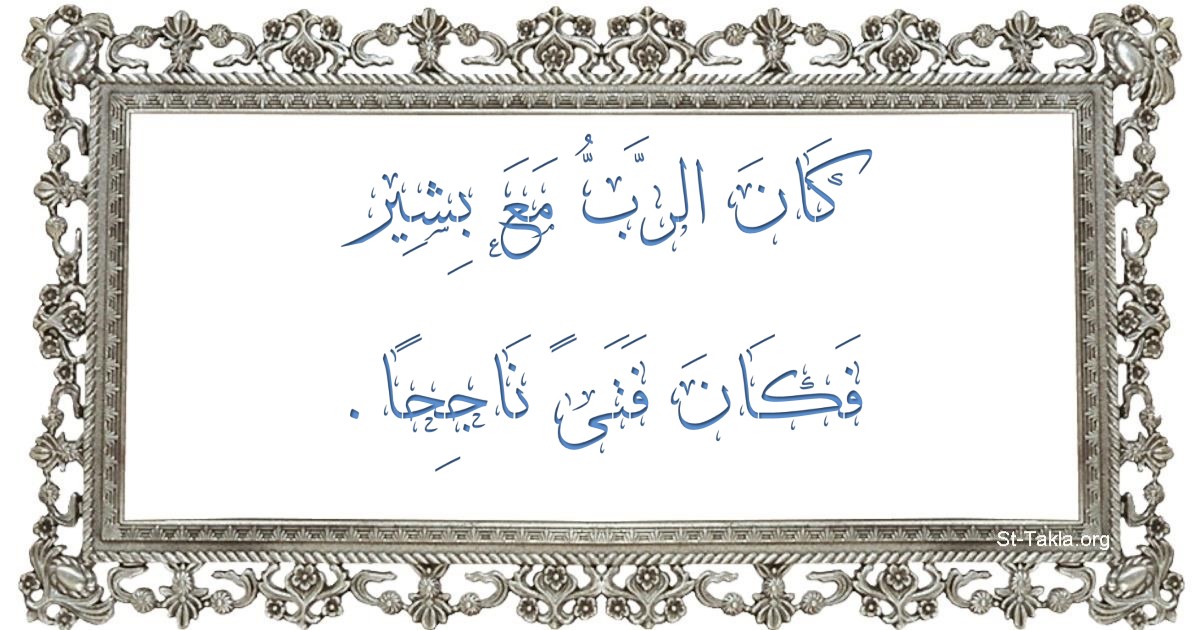 كَانَ الرَّبُّ مَعَ بِشِير
فَكَانَ فَتَىً نَاجِحًا .
St-Takla.org